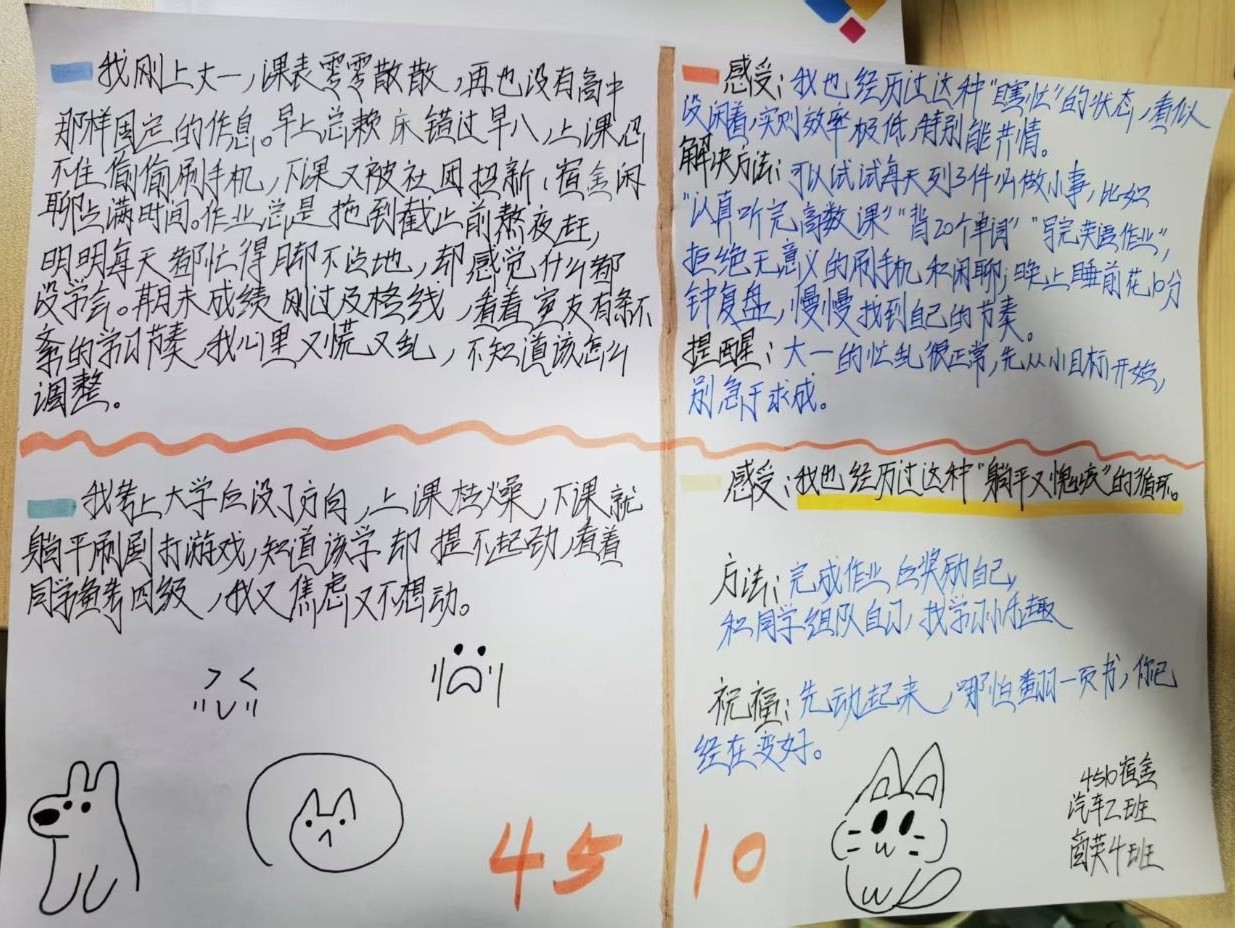 我刚上大一，课表零零散散，再也没有高中
那样固定的作息。早上总赖床错过早八，上课忍
不住偷偷刷手机，下课又被社团招新、宿舍闲
聊占满时间。作业总是拖到截止前熬夜赶，
明明每天都忙得脚不沾地，却感觉什么都
没学会。期末成绩刚过及格线，看着室友有条不
紊的学习节奏，我心里又慌又乱，不知道该怎么
调整。
感受：我也经历过这种“瞎忙”的状态，看似
没闲着，实则效率极低，特别能共情。
解决方法：可以试试每天列3件必做小事，比如
“认真听完高数课”“背20个单词”“写完英语作业”，
拒绝无意义的刷手机和闲聊；晚上睡前花10分
钟复盘，慢慢找到自己的节奏。
提醒：大一的忙乱很正常，先从小目标开始，
别急于求成。
我考上大学后没了方向，上课枯燥，下课就
躺平刷剧打游戏，知道该学却提不起劲，看着
同学备考四级，我又焦虑又不想动。
感受：我也经历过这种“躺平又愧疚”的循环。
方法：完成作业后奖励自己，
和同学组队自习，找学习小乐趣
祝福：先动起来，哪怕翻一页书，你已
经在变好。
4510
4510宿舍
汽车2班
商英4班